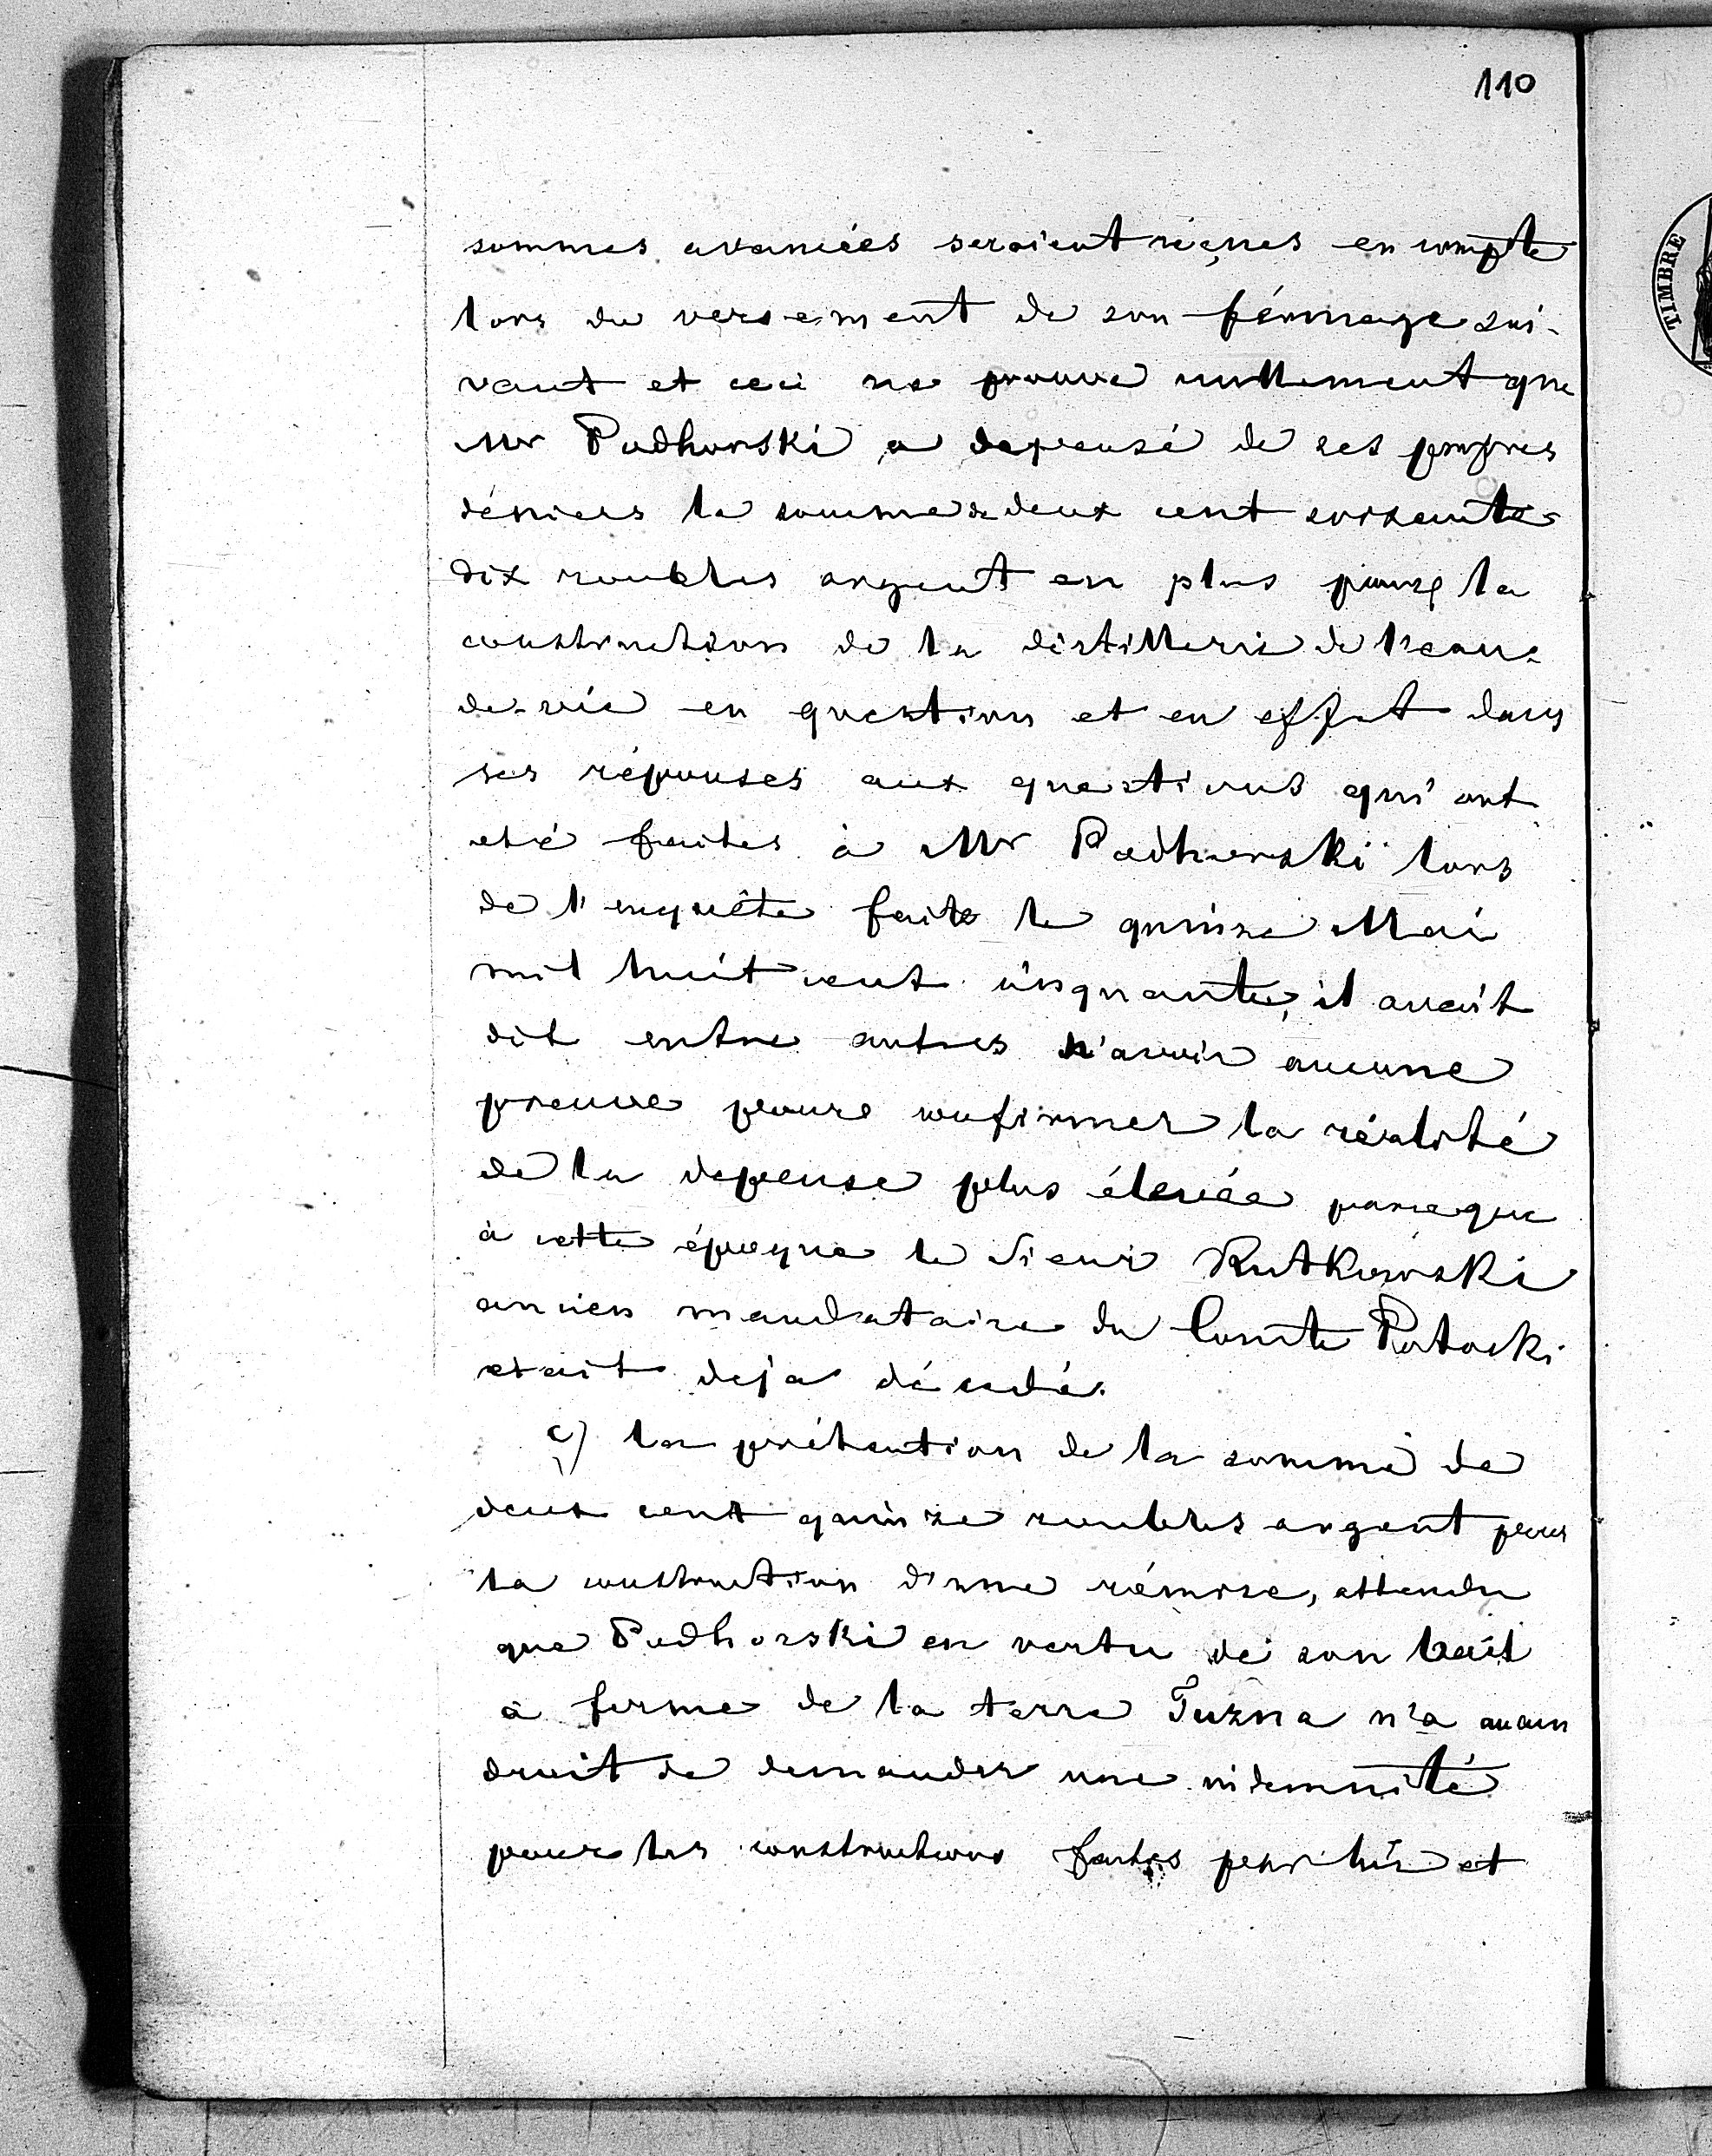 110
sommes avancées seraient reçues en compte
lors du versement de son férmage sui-
vant et ceci ne prouve nullement que
Mr Podhorski a depensé de ses propres
déniers la somme de deux cent soixante
dix roubles argent en plus pour la
construction de la distillerie de l'eau-
de-vie en question et en effet dans
ses réponses aux questions qui ont
eté faites à Mr Podhorski lors
de l'enquête faite le quinze Mai
mil huit cent cinquante, il avait
dit entre autres n'avoir aucune
preuve pour confirmer la réalité
de la depense plus élevée parceque
à cette époque le Sieur Rutkowski
ancien mandataire du Comte Potocki
etait deja décedé.
c) la prétention de la somme de
deux cent quinze roubles argent pour
la construction d'une rémise, attendu
que Podhorski en vertu de son bail
à ferme de la terre Tuzna n'a aucun
droit de demander une indemnité
pour les constructions faites par lui et
TIMBRE